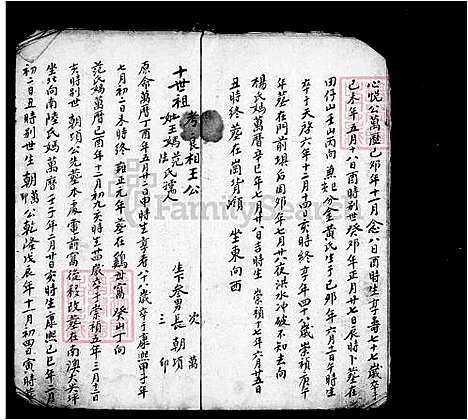 心悦公萬歷己卯年十一月念八日酉時生享壽七十七歲卒于
己未年五月十八日酉時別世癸卯年正月廿七日辰時卜葬在
田仔山壬山丙向 分金黃氏生于己卯年六月十一日午時生
卒于天啓六年十二月十四亥時終享年四十八歲崇禎庚午
年葬在門前垻后因卯七月廿六夜洪水冲破不知去向
楊氏媽萬曆辛巳年七月廿八日吉時生 崇禎丁丁年六月廿五日
丑時終 葬在崗背 坐東向西
十世祖 考良相王公
妣王媽范氏孺人
陸氏
生叁男長朝 項
次 萬
三 卯
原命萬曆丁酉年五月廿二日申時生享壽八十八歲卒于康熙甲子年
七月初二日未時終 雍正元年葬在鷄母窩癸山丁向
范氏媽萬曆己酉年十二月初九亥時生廿四歲卒于崇禎五年三月三日
亥時別世 朝項公先葬本處電前窩後移改葬在南澳大坪
坐北向南陸氏媽萬曆壬子年二月廿日亥時生康熙己巳年二月
初二日丑時別世生朝萬卯公乾隆戊辰年十一月初四日寅時葬
FamilySearch